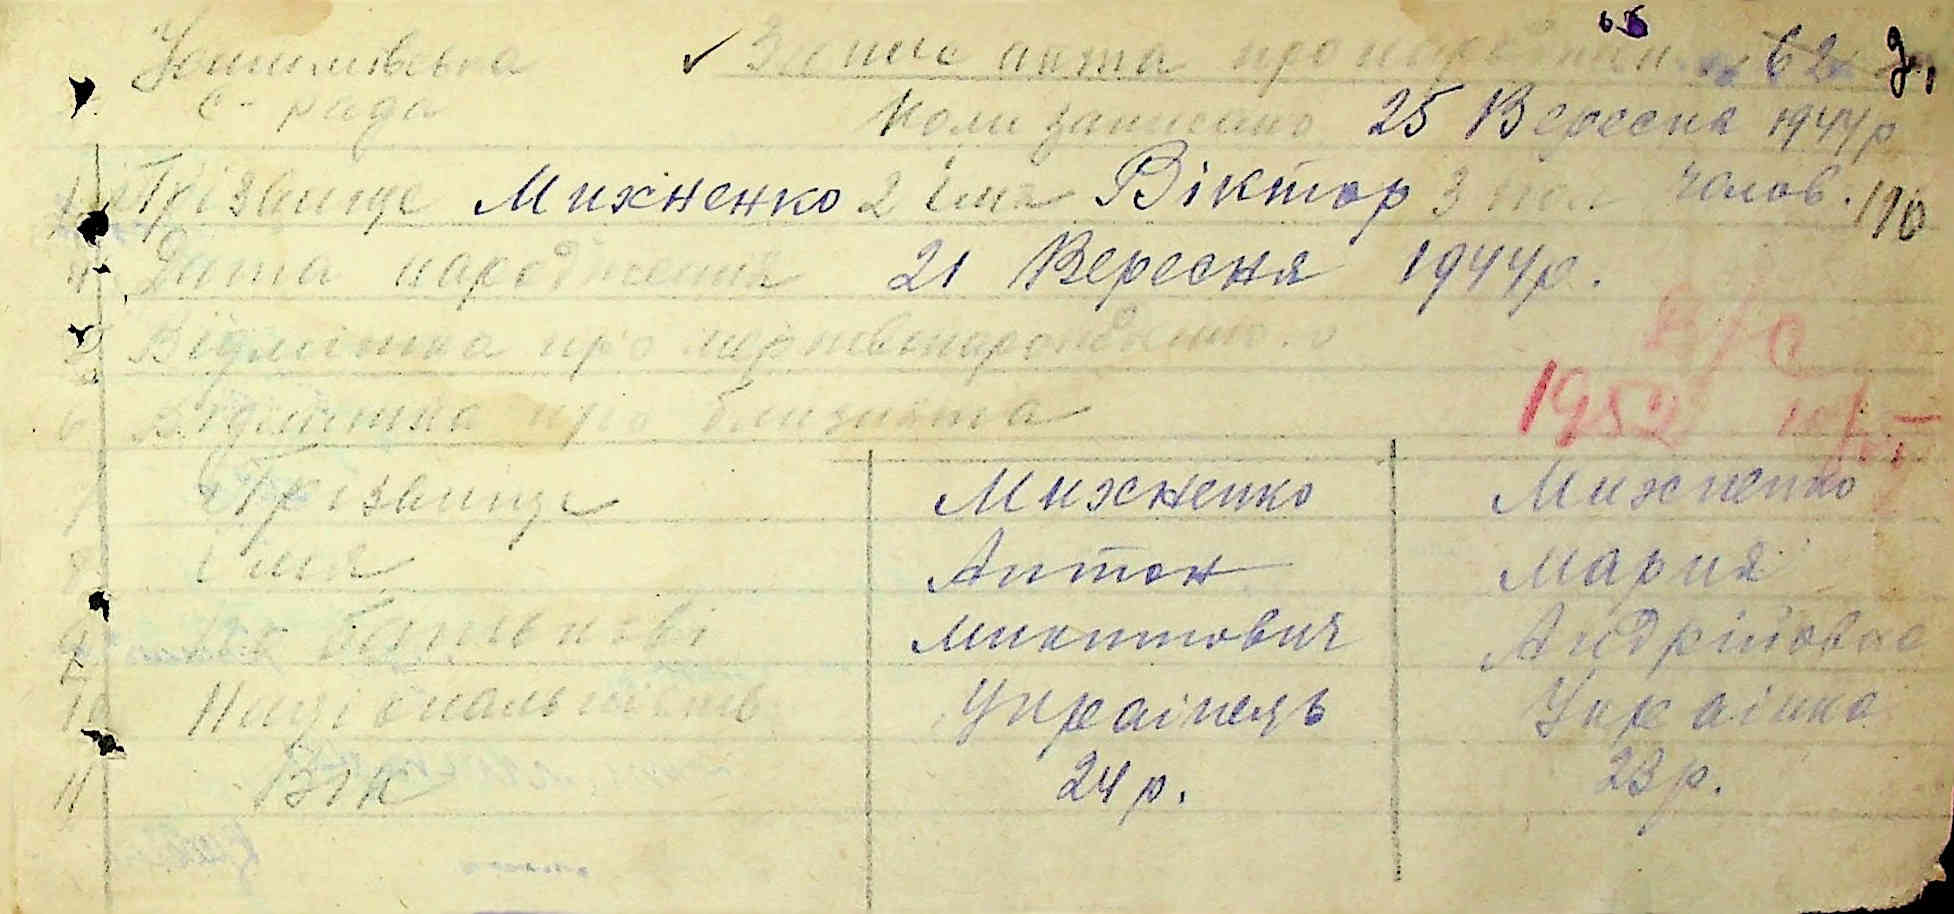 с-рада ✓ Запис акта про народження № 62
Коли записано 25 Вересня 1944р
1 Прізвище Михненко 2 імя Віктор 3 пол чолов. 196
4 Дата народження 21 Вересня 1944р.
5 Відмітка про мертвонародженню
6 Відмітка про близнята
1952
7 Прізвище Михненко Михненко
8 імя Антон Мария
9 По батькові Андрііовна
10 Національність Украінець Украінка
11 Вік 24 р. 23 р.